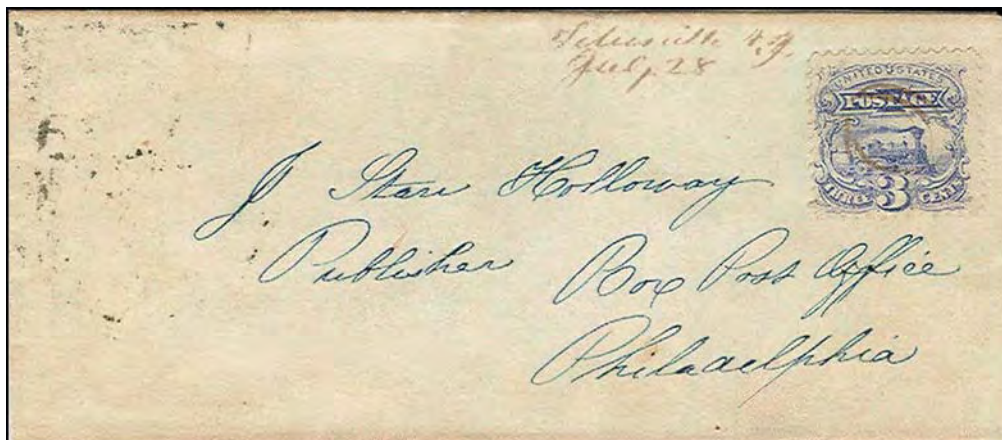 July 28
UNITED STATES
POSTAGE
THREE 3 CENTS
J Starr Holloway
Publisher Box Post Office
Philadelphia